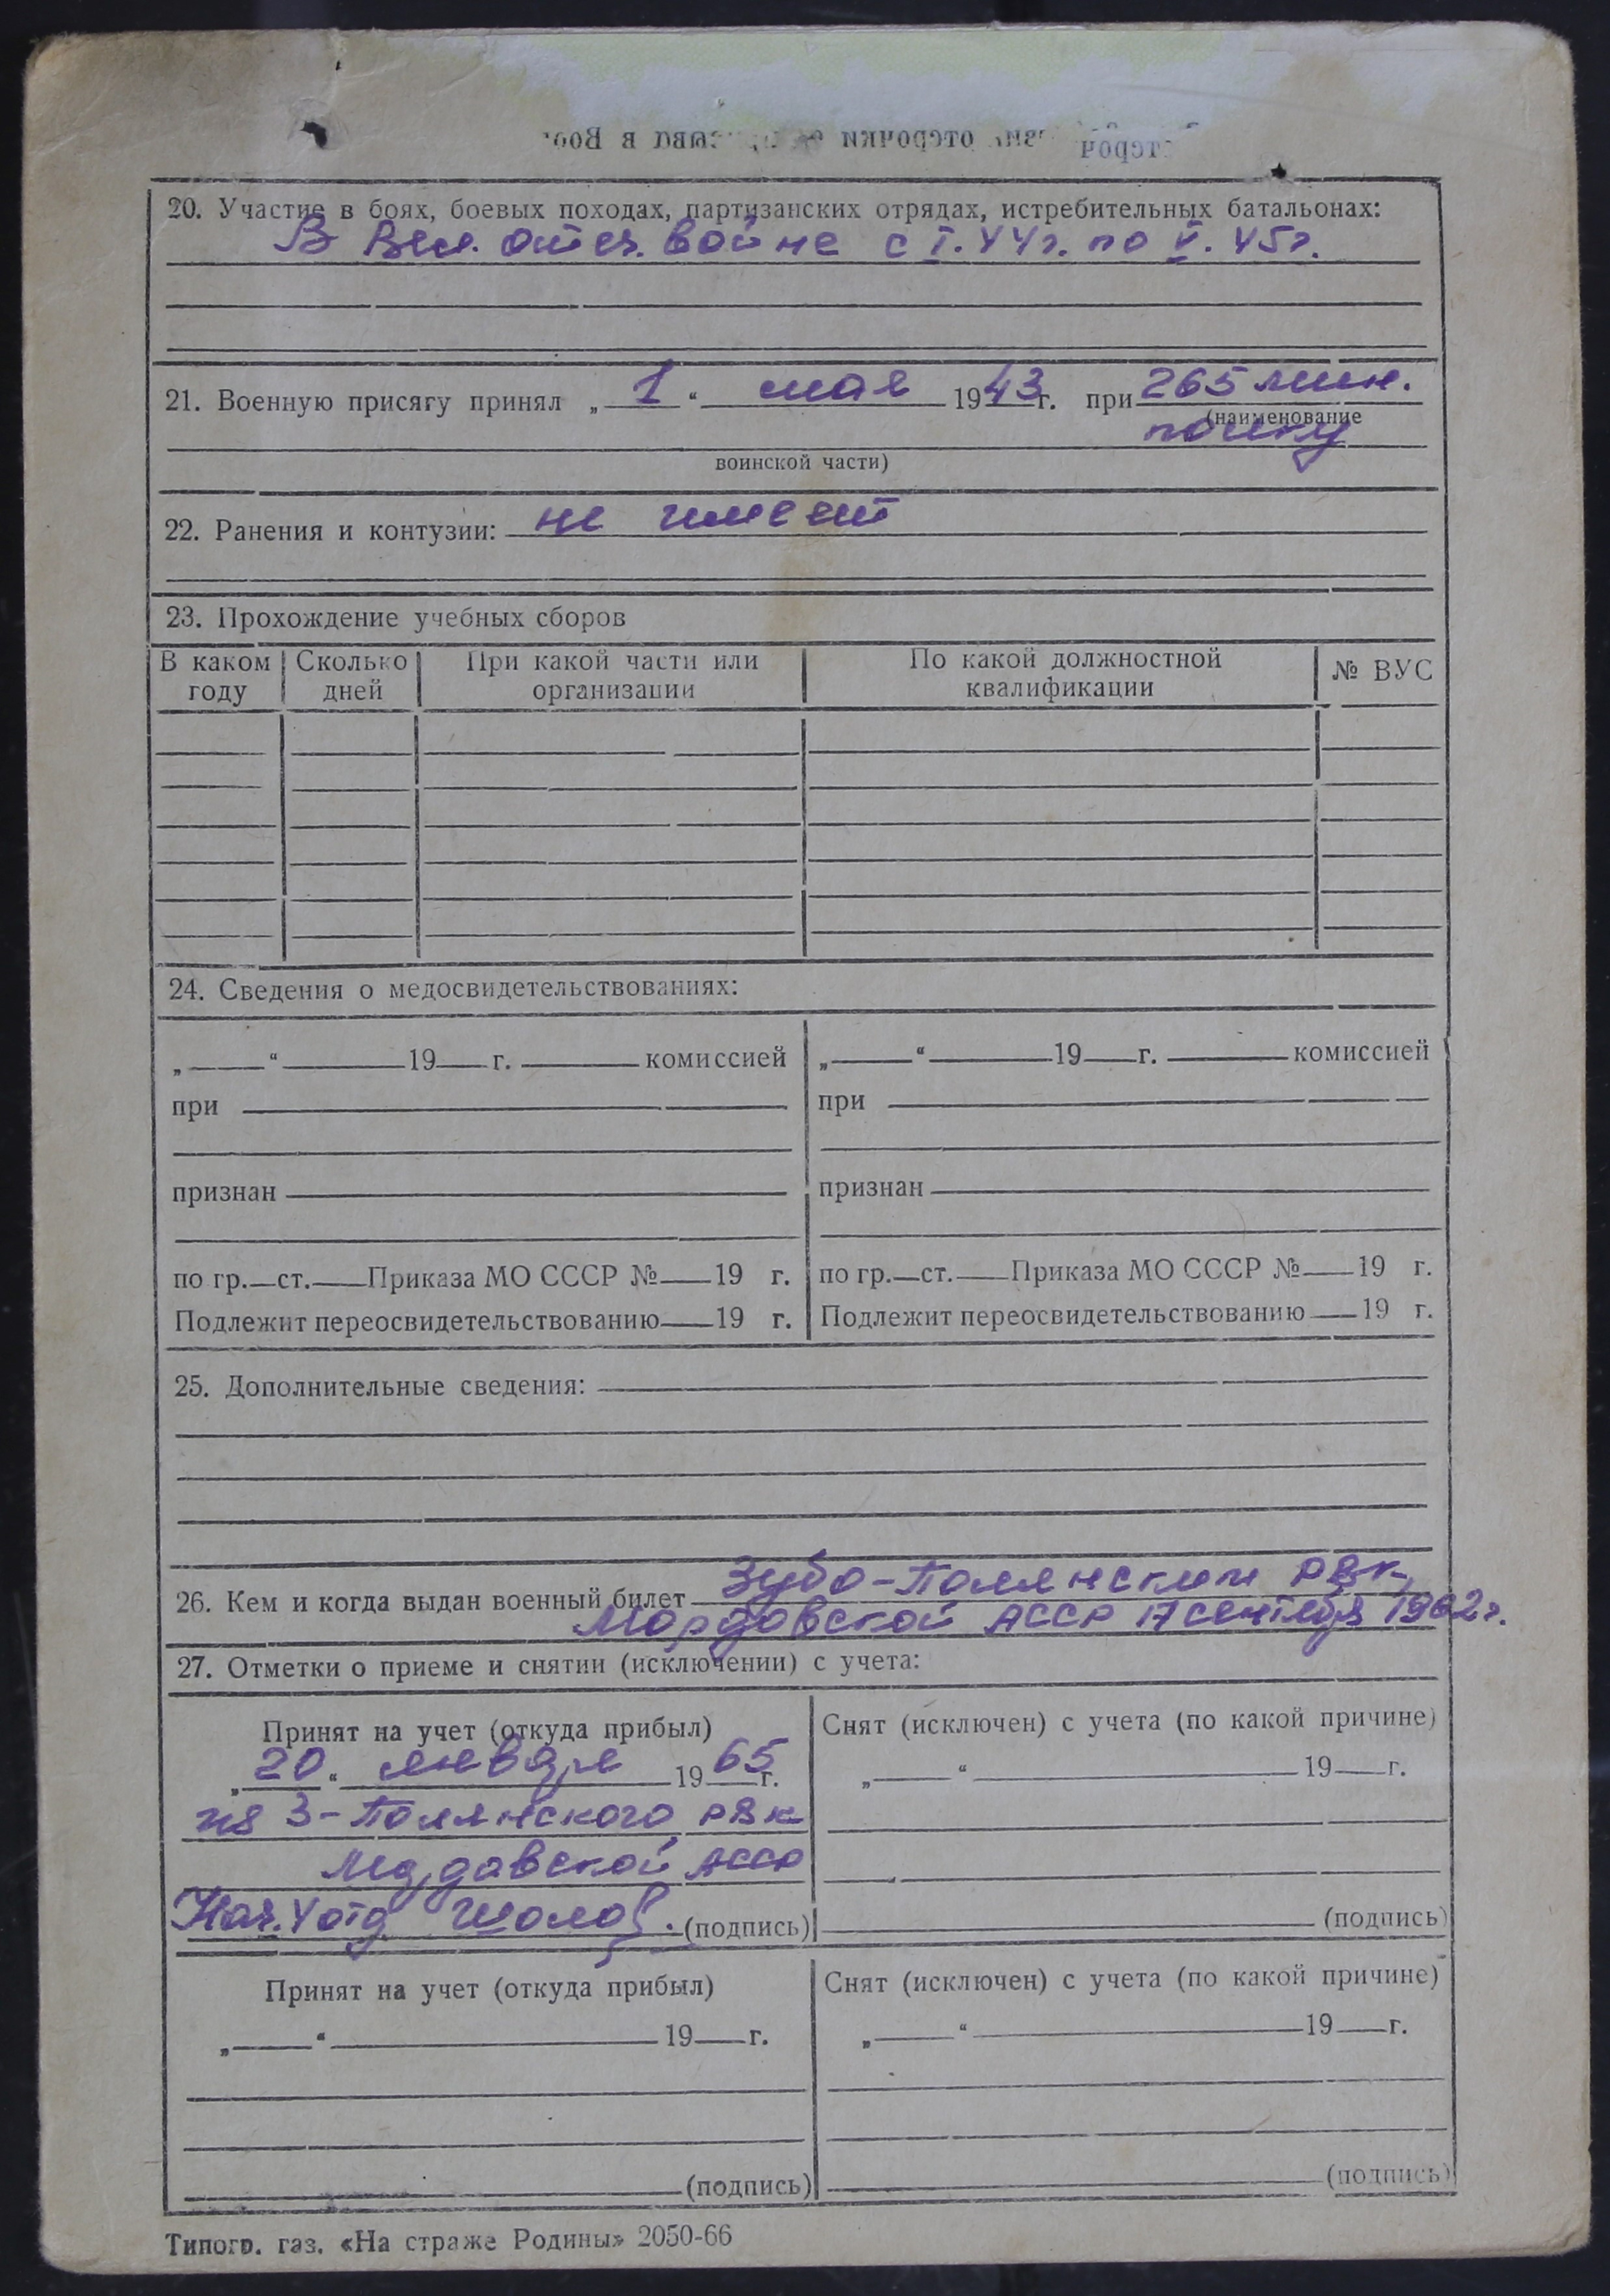 отсрочки
20. Участие в боях, боевых походах, партизанских отрядах, истребительных батальонах:
В Вел. отеч. войне с I. 44г. по V. 45г.
21. Военную присягу принял „ 1 “ мая 1943г. при 265 мин.
(наименование
полку
воинской части)
22. Ранения и контузии: не имеет
23. Прохождение учебных сборов
В каком году | Сколько дней | При какой части или организации | По какой должностной квалификации | № ВУС
24. Сведения о медосвидетельствованиях:
„ “ 19 г. комиссией
при
признан
по гр. ст. Приказа МО СССР № 19 г.
Подлежит переосвидетельствованию 19 г.
„ “ 19 г. комиссией
при
признан
по гр. ст. Приказа МО СССР № 19 г.
Подлежит переосвидетельствованию 19 г.
25. Дополнительные сведения:
26. Кем и когда выдан военный билет Зубо-Полянским РВК,
Мордовской АССР 17 сентября 1962г.
27. Отметки о приеме и снятии (исключении) с учета:
Принят на учет (откуда прибыл)
„ 20 “ января 1965 г.
из З-Полянского РВК
Мордовской АССР
Нач. V отд (подпись)
Снят (исключен) с учета (по какой причине)
„ “ 19 г.
(подпись)
Принят на учет (откуда прибыл)
„ “ 19 г.
(подпись)
Снят (исключен) с учета (по какой причине)
„ “ 19 г.
(подпись)
Типогр. газ. «На страже Родины» 2050-66